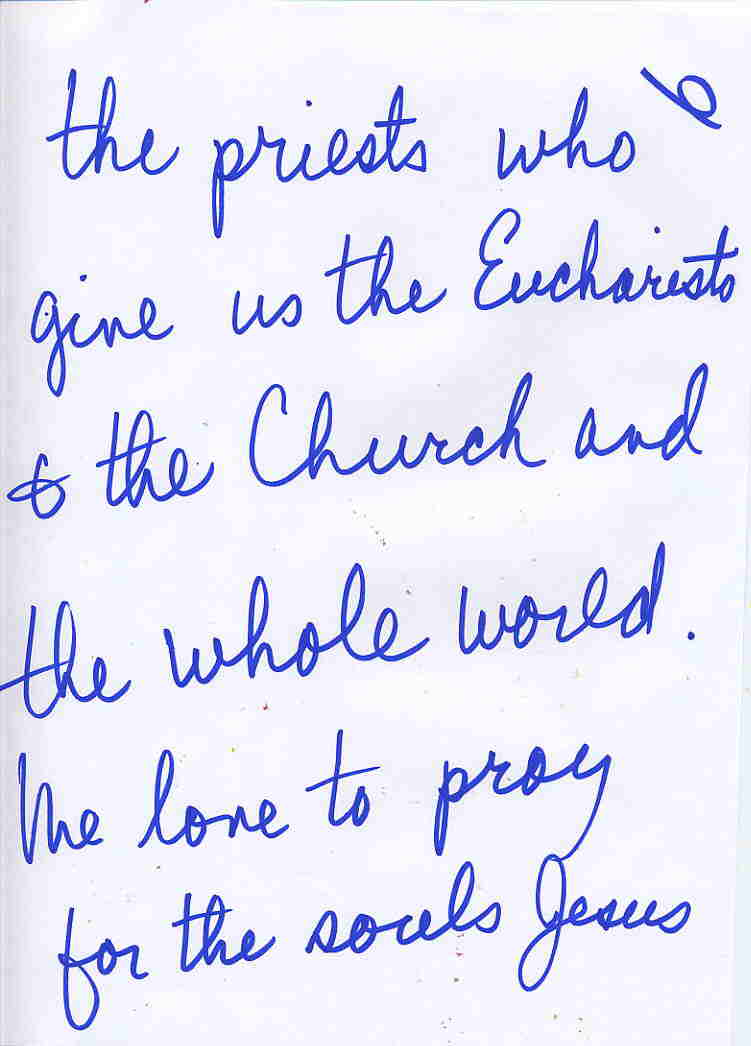 6
the priests who
give us the Eucharist
& the Church and
the whole world.
We love to pray
for the souls Jesus